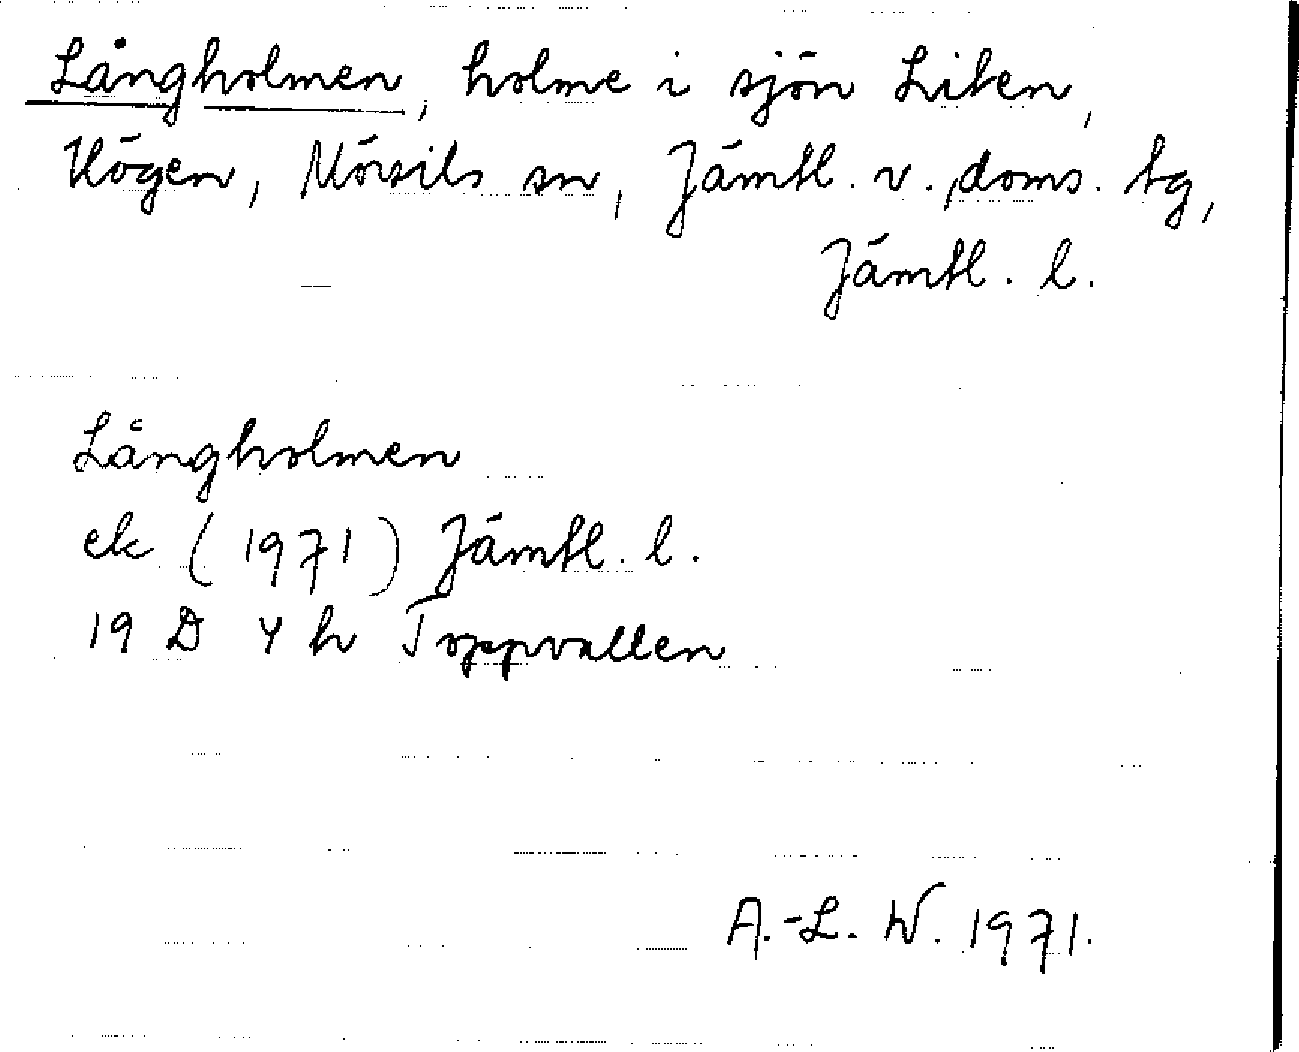 Långholmen, holme i sjön Liten,
Högen, Mörsils sn, Jämtl. v. doms. tg,
Jämtl. l.
Långholmen
ek (1971) Jämtl. l.
19 D 4 h Toppvallen
A.-L. W. 1971.